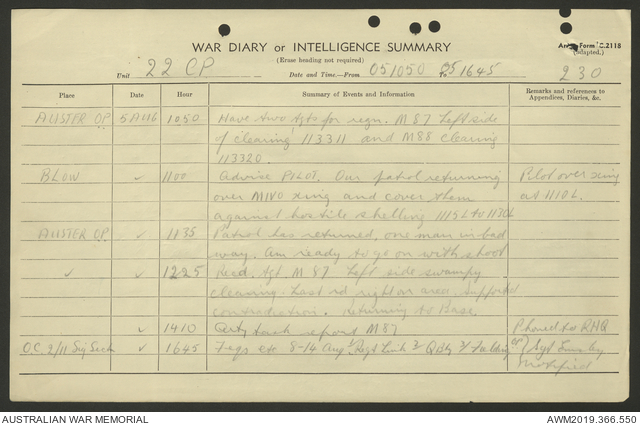 WAR DIARY or INTELLIGENCE SUMMARY
Army Form C.2118
(adapted.)
(Erase heading not required)
Unit 22 CP
Date and Time—From 051050 051645
230
Place Date Hour Summary of Events and Information Remarks and references to Appendices, Diaries, &c.
AUSTER OP 5 AUG 1050 Have two tgts for regn. M87 Left side
of clearing 113311 and M88 clearing
113320.
BLOW ✓ 1100 Advise PILOT. Our patrol returning Pilot over xing
over MIVO xing and cover them at 1110L.
against hostile shelling 1115L to 1130L
AUSTER OP. ✓ 1135 Patrol has returned, one man in bad
way. Am ready to go on with shoot
✓ 1225 Recd. tgt. M87 Left side swampy
clearing. Last rd right on area.
returning to Base.
✓ 1410 Arty task report M87 Phoned to RHQ
O.C. 2/11 Sig Sect ✓ 1645 Freqs etc 8-14 Aug Regt Link
AUSTRALIAN WAR MEMORIAL
AWM2019.366.550